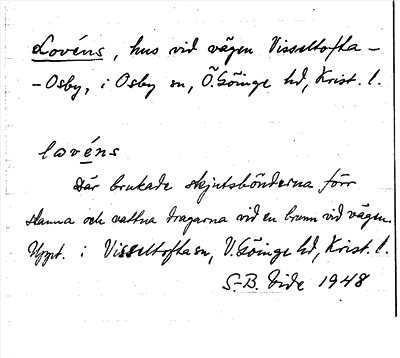 Lovéns, hus vid vägen Visseltofta -
- Osby, i Osby sn, Ö. Göinge hd, Krist. l.
lovéns
Där brukade skjutsbönderna förr
stanna och vattna dragarna vid en brunn vid vägen.
Uppt. i Visseltofta sn, V. Göinge hd, Krist. l.
S.-B. Vide 1948